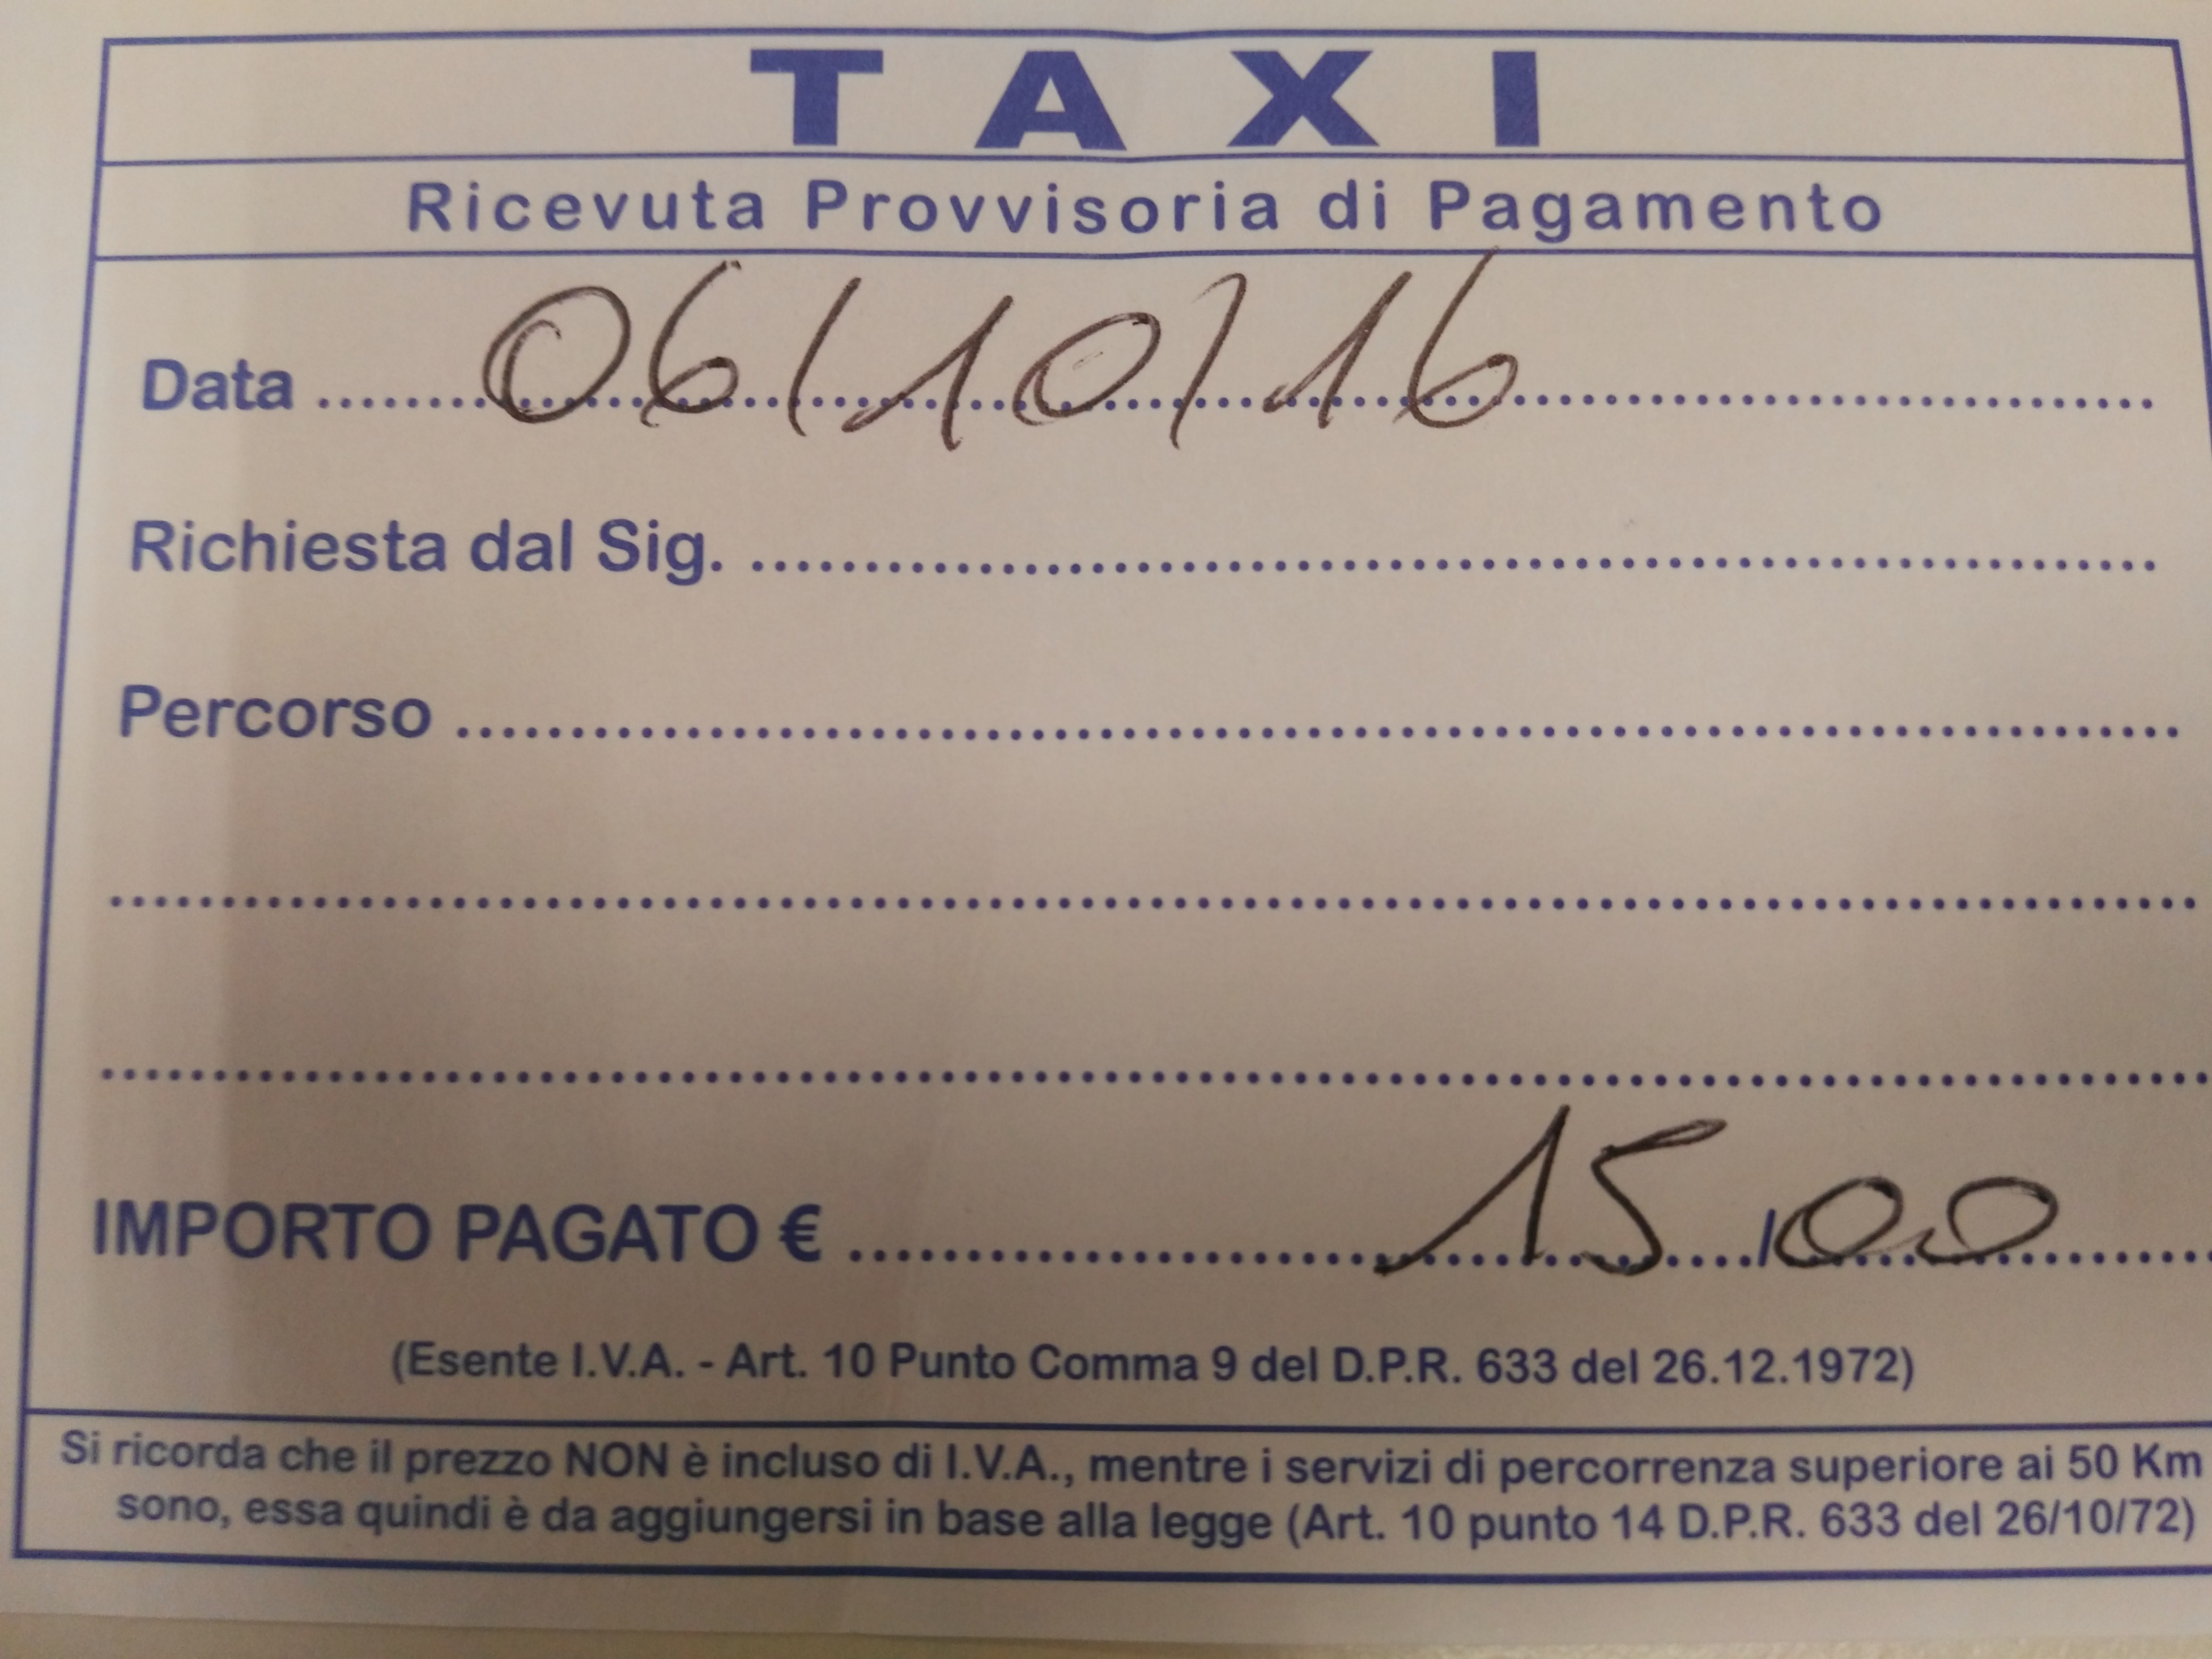 TAXI
Ricevuta Provvisoria di Pagamento
Data ........ 06/10/16 ........
Richiesta dal Sig. ........
Percorso ........
........
........
IMPORTO PAGATO € ........ 15,00 ........
(Esente I.V.A. - Art. 10 Punto Comma 9 del D.P.R. 633 del 26.12.1972)
Si ricorda che il prezzo NON è incluso di I.V.A., mentre i servizi di percorrenza superiore ai 50 Km
sono, essa quindi è da aggiungersi in base alla legge (Art. 10 punto 14 D.P.R. 633 del 26/10/72)